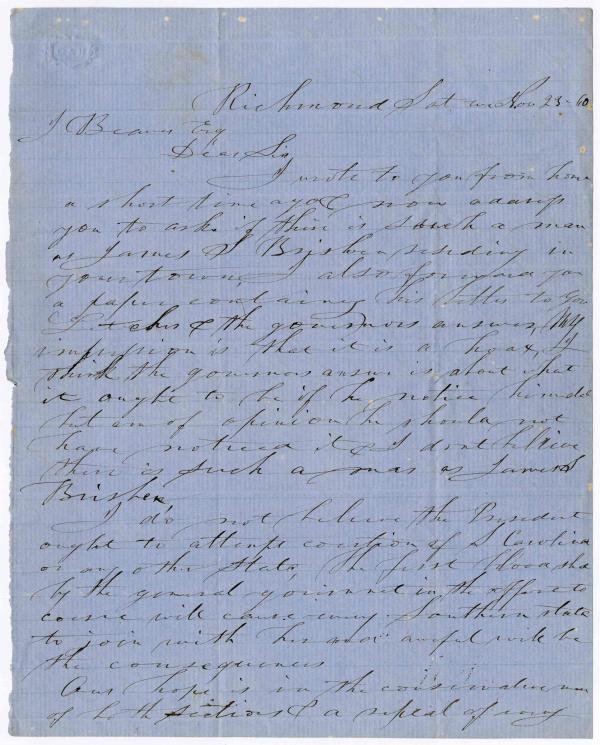 Richmond Sat Nov 23 - 60
J Beaver Esq
Dear Sir
I wrote to you from home
a short time ago & now
you to ask if there is such a man
as James S Brisben residing in
your towne, I also forward you
a paper containing his letter to Gov
Letcher & the governors answer, My
impression is that it is a hoax, I
think the governors answer is about what
it ought to be if he notice him
but am of opinion he should not
have noticed it & I dont believe
there is such a man as James S
Brisben
I do not believe the President
ought to attempt coertion of S Carolina
or any other State, the first blood shed
by the general goverment in the effort to
coerce will cause every Southern state
to join with her and awful will be
the consequences
Our hope is in the conservative men
of both sections & a repeal of every